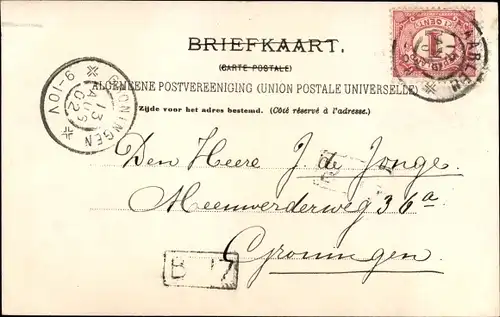 BRIEFKAART.
(CARTE POSTALE)
ALGEMEENE POSTVEREENIGING (UNION POSTALE UNIVERSELLE)
Zijde voor het adres bestemd. (Côté réservé à l'adresse.)
1 CENT
GRONINGEN
13
AUG
02
9-10V
Den Heere J. de Jonge.
Meeuwerderweg 36a
Groningen.